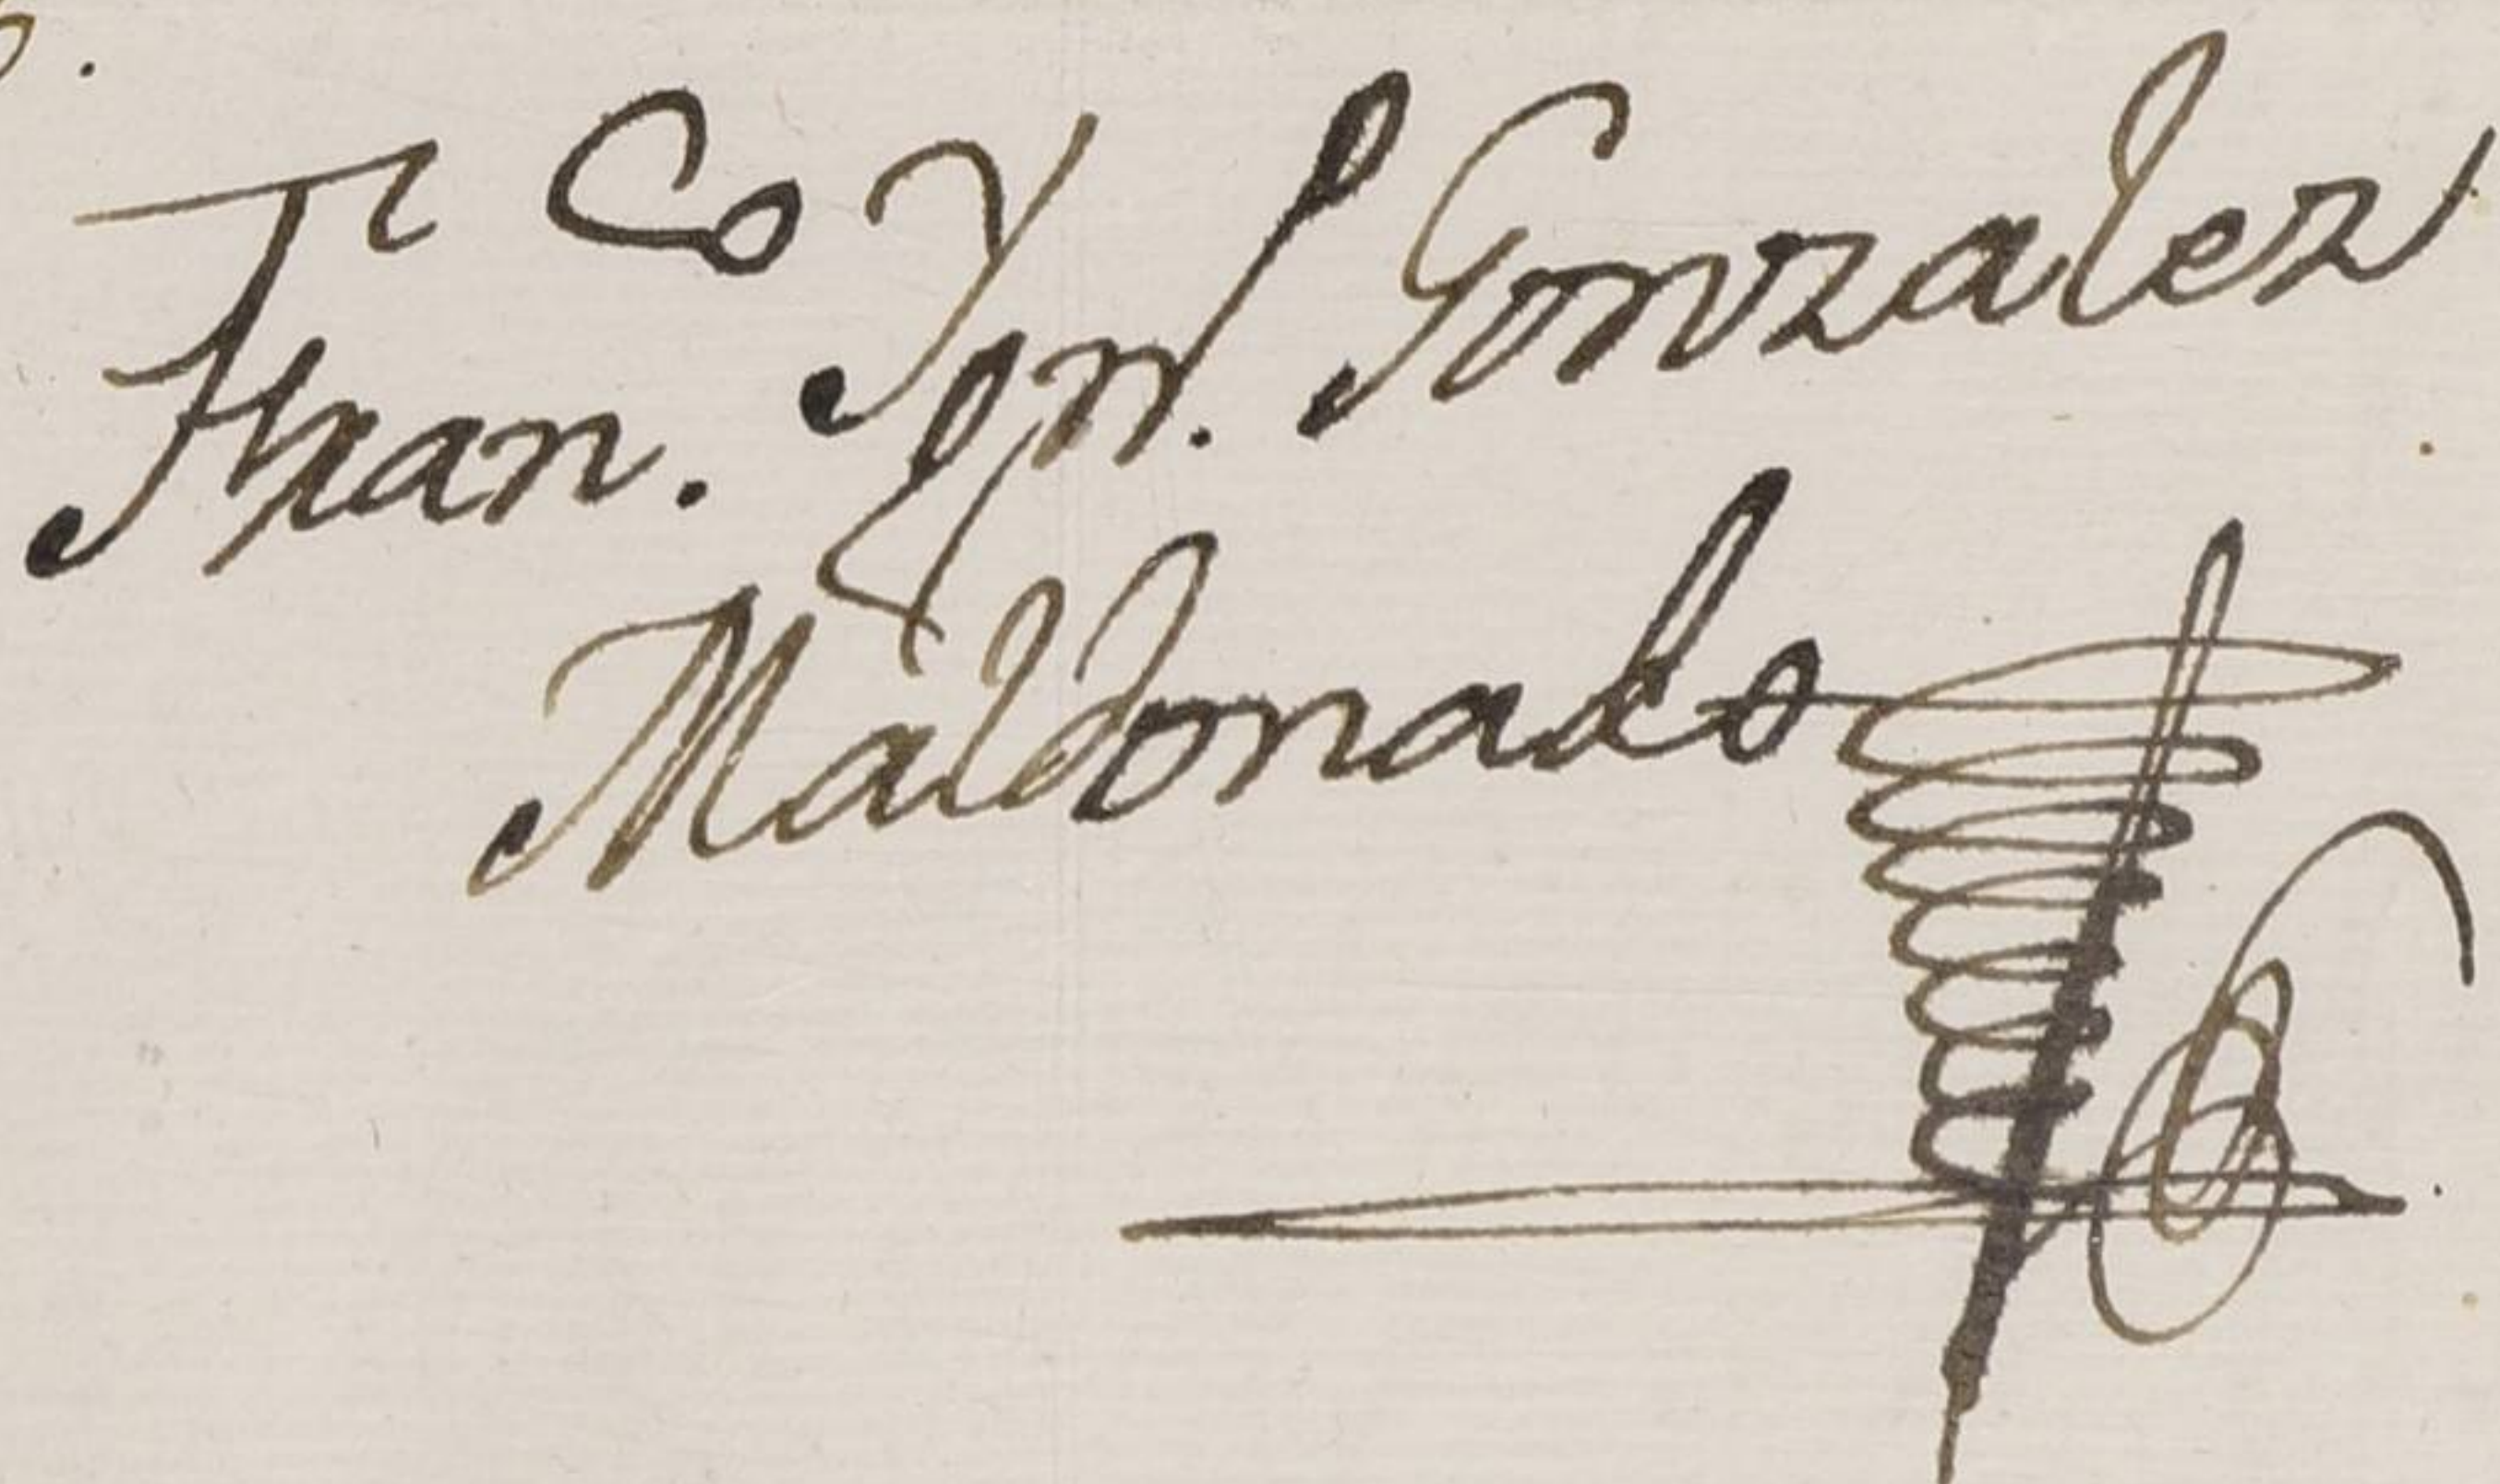 Fran.co Ygn.l Gonzalez
Maldonado